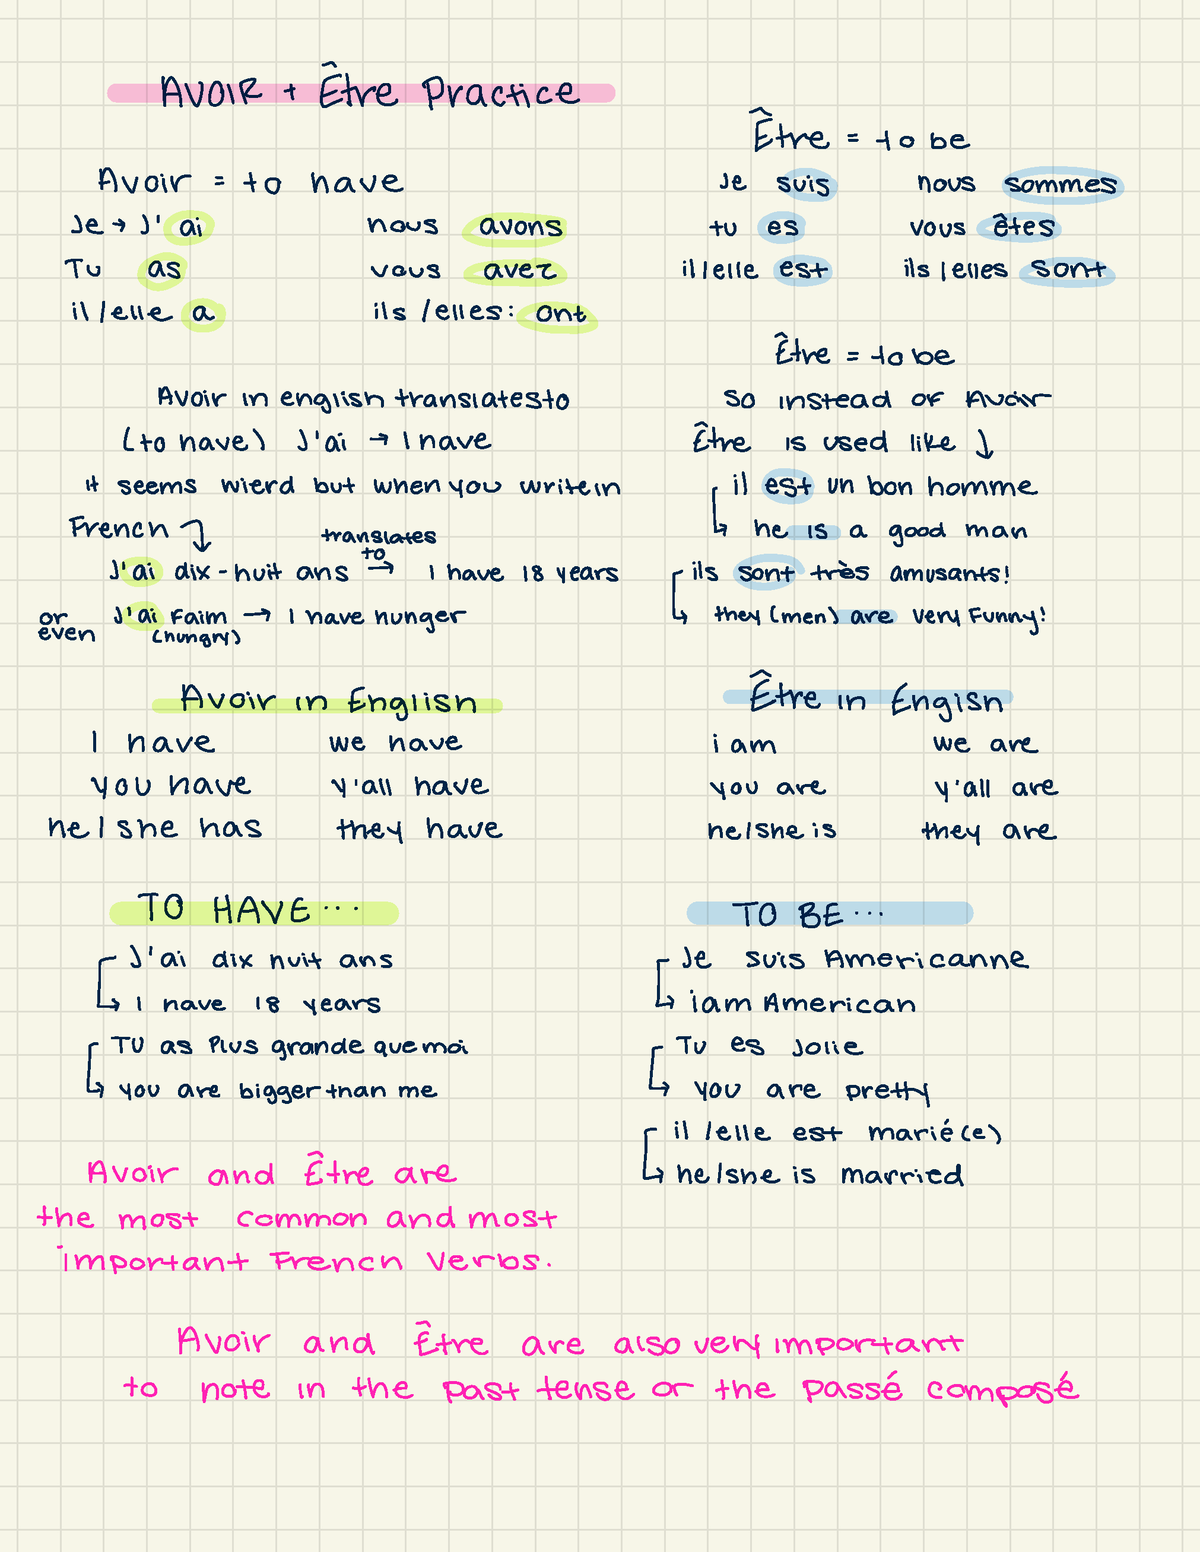 AVOIR + Être Practice
Avoir = to have
Je → J' ai
nous avons
Tu as
vous avez
il/elle a
ils /elles: ont
Avoir in english translates to
(to have) J'ai → I have
it seems wierd but when you write in
French
J'ai dix-huit ans → translates to I have 18 years
or even J'ai Faim → I have hunger
(hungry)
Avoir in English
I have
we have
you have
y'all have
he/she has
they have
TO HAVE...
J'ai dix huit ans
I have 18 years
TU as Plus grande que moi
you are bigger than me
Avoir and Être are
the most common and most
important French Verbs.
Être = to be
Je suis
nous sommes
tu es
vous êtes
il/elle est
ils/elles sont
Être = to be
so instead of Avoir
Être is used like ↓
il est un bon homme
he is a good man
ils sont très amusants!
they (men) are very Funny!
Être in Engish
i am
we are
you are
y'all are
he/she is
they are
TO BE...
Je suis Americanne
i am American
Tu es Jolie
you are pretty
il/elle est marié(e)
he/she is married
Avoir and Être are also very important
to note in the past tense or the passé composé